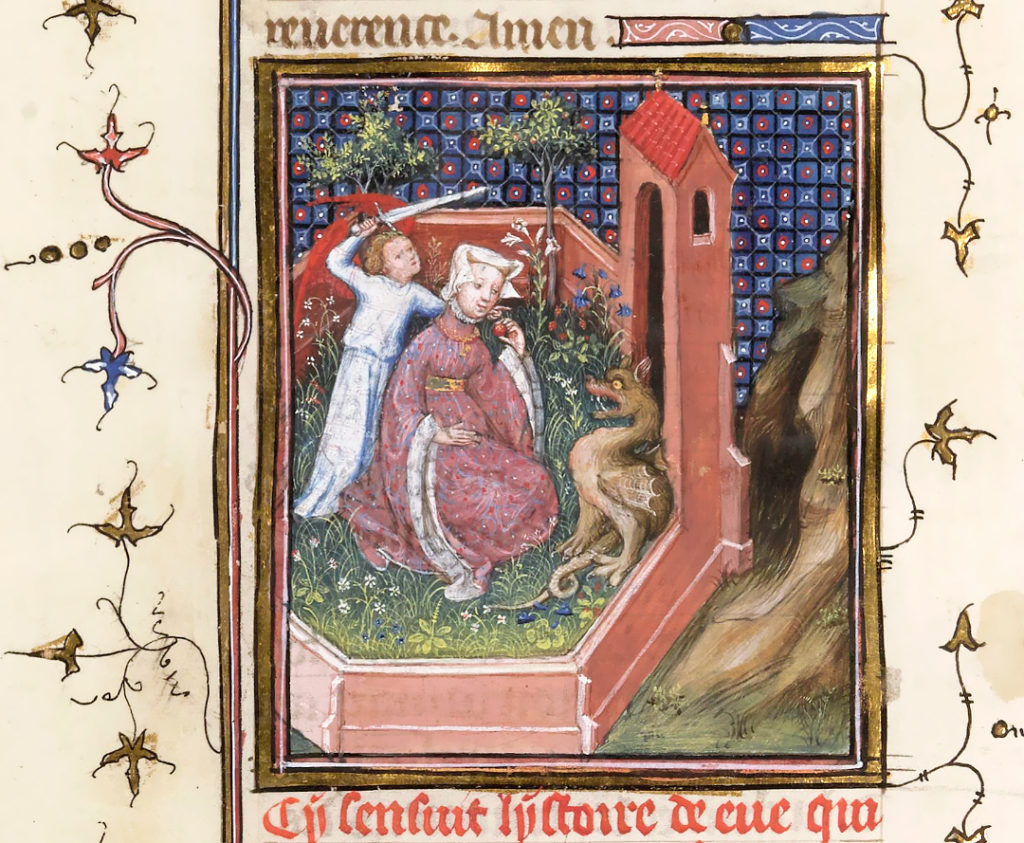 reuerence. Amen.
Cy sensuit lystoire de eue qui